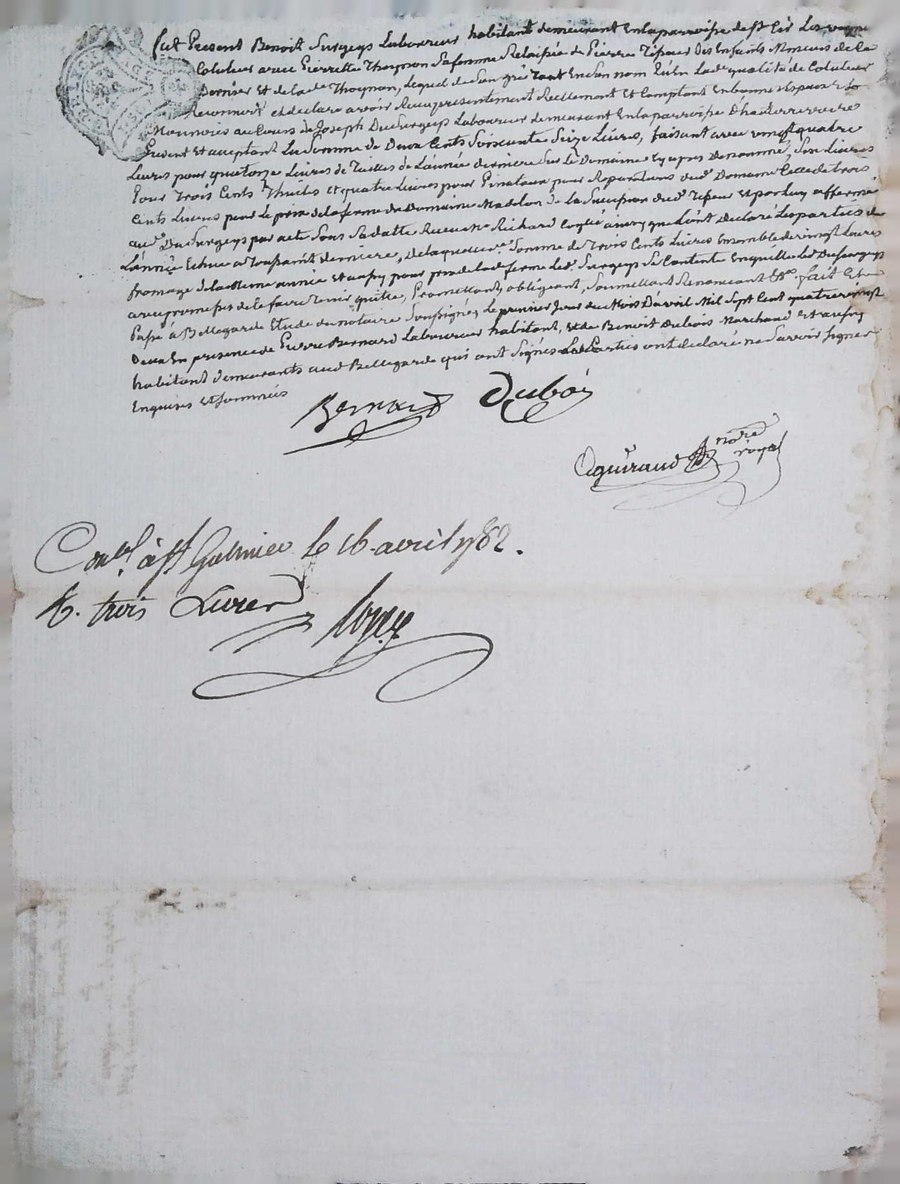 fut Present Benoit Surgeys Laboureur habitant demeurant En la paroisse de st Cir Les vignes
Cotuteur avec Pierrette Thoynon Sa femme Relaissée de Pierre Des Enfants Mineurs de Ce
Dernier Et de lade Thoynon, Lequel de Son gré tant En Son nom qu'En Lad qualité de Cotuteur
reconnoit et declare avoir Reçu presentement Reellement Et Comptant En bonnes Especes
Monnoies au Cours de Joseph DuSurgeys Laboureur demeurant En la parroisse
present Et acceptant La Somme de Deux Cents Soixante Seize Livres, faisant avec vingt quatre
Livres pour quatorze Livres de Tailles de L'année derniere Sur Le Domaine Cy apres Denommé, Six Livres
pour Trois Cents Thuiles et quatre Livres pour pour Reparations dud Domaine Celle de trois
Cents Livres pour le prix de la ferme du Domaine Madelon de la Succession dud Et par luy affermé
aud DuSurgeys par acte Sous Sa datte Reçu me Richard ainsy que L'ont Declaré Les parties de
L'année Echue a Toussaint derniere, De laquelle Somme de Trois Cents Livres Ensemble de vingt Livres
fromage de la même année Et aussy pour prix de lad ferme Led Surgeys Se Contente En quitte Led DuSurgeys
avec promesses de le faire Tenir quitte, Promettant, obligeant, Soumettant, Renonçant &a fait Et
Passé à Bellegarde Etude du notaire Soussigné Le premier Jour du Mois D'avril Mil Sept Cent quatre vingt
Deux En presence de Pierre Bernard Laboureur habitant, Et de Benoit Dubois Marchand Et aussy
habitant demeurants aud Bellegarde qui ont Signés Les Parties ont declaré ne Savoir Signer
Enquises Et Sommés
Bernard Dubois
Aguiraud nore royal
Conlé à st Galmier le 16 avril 1782.
R. trois Livres